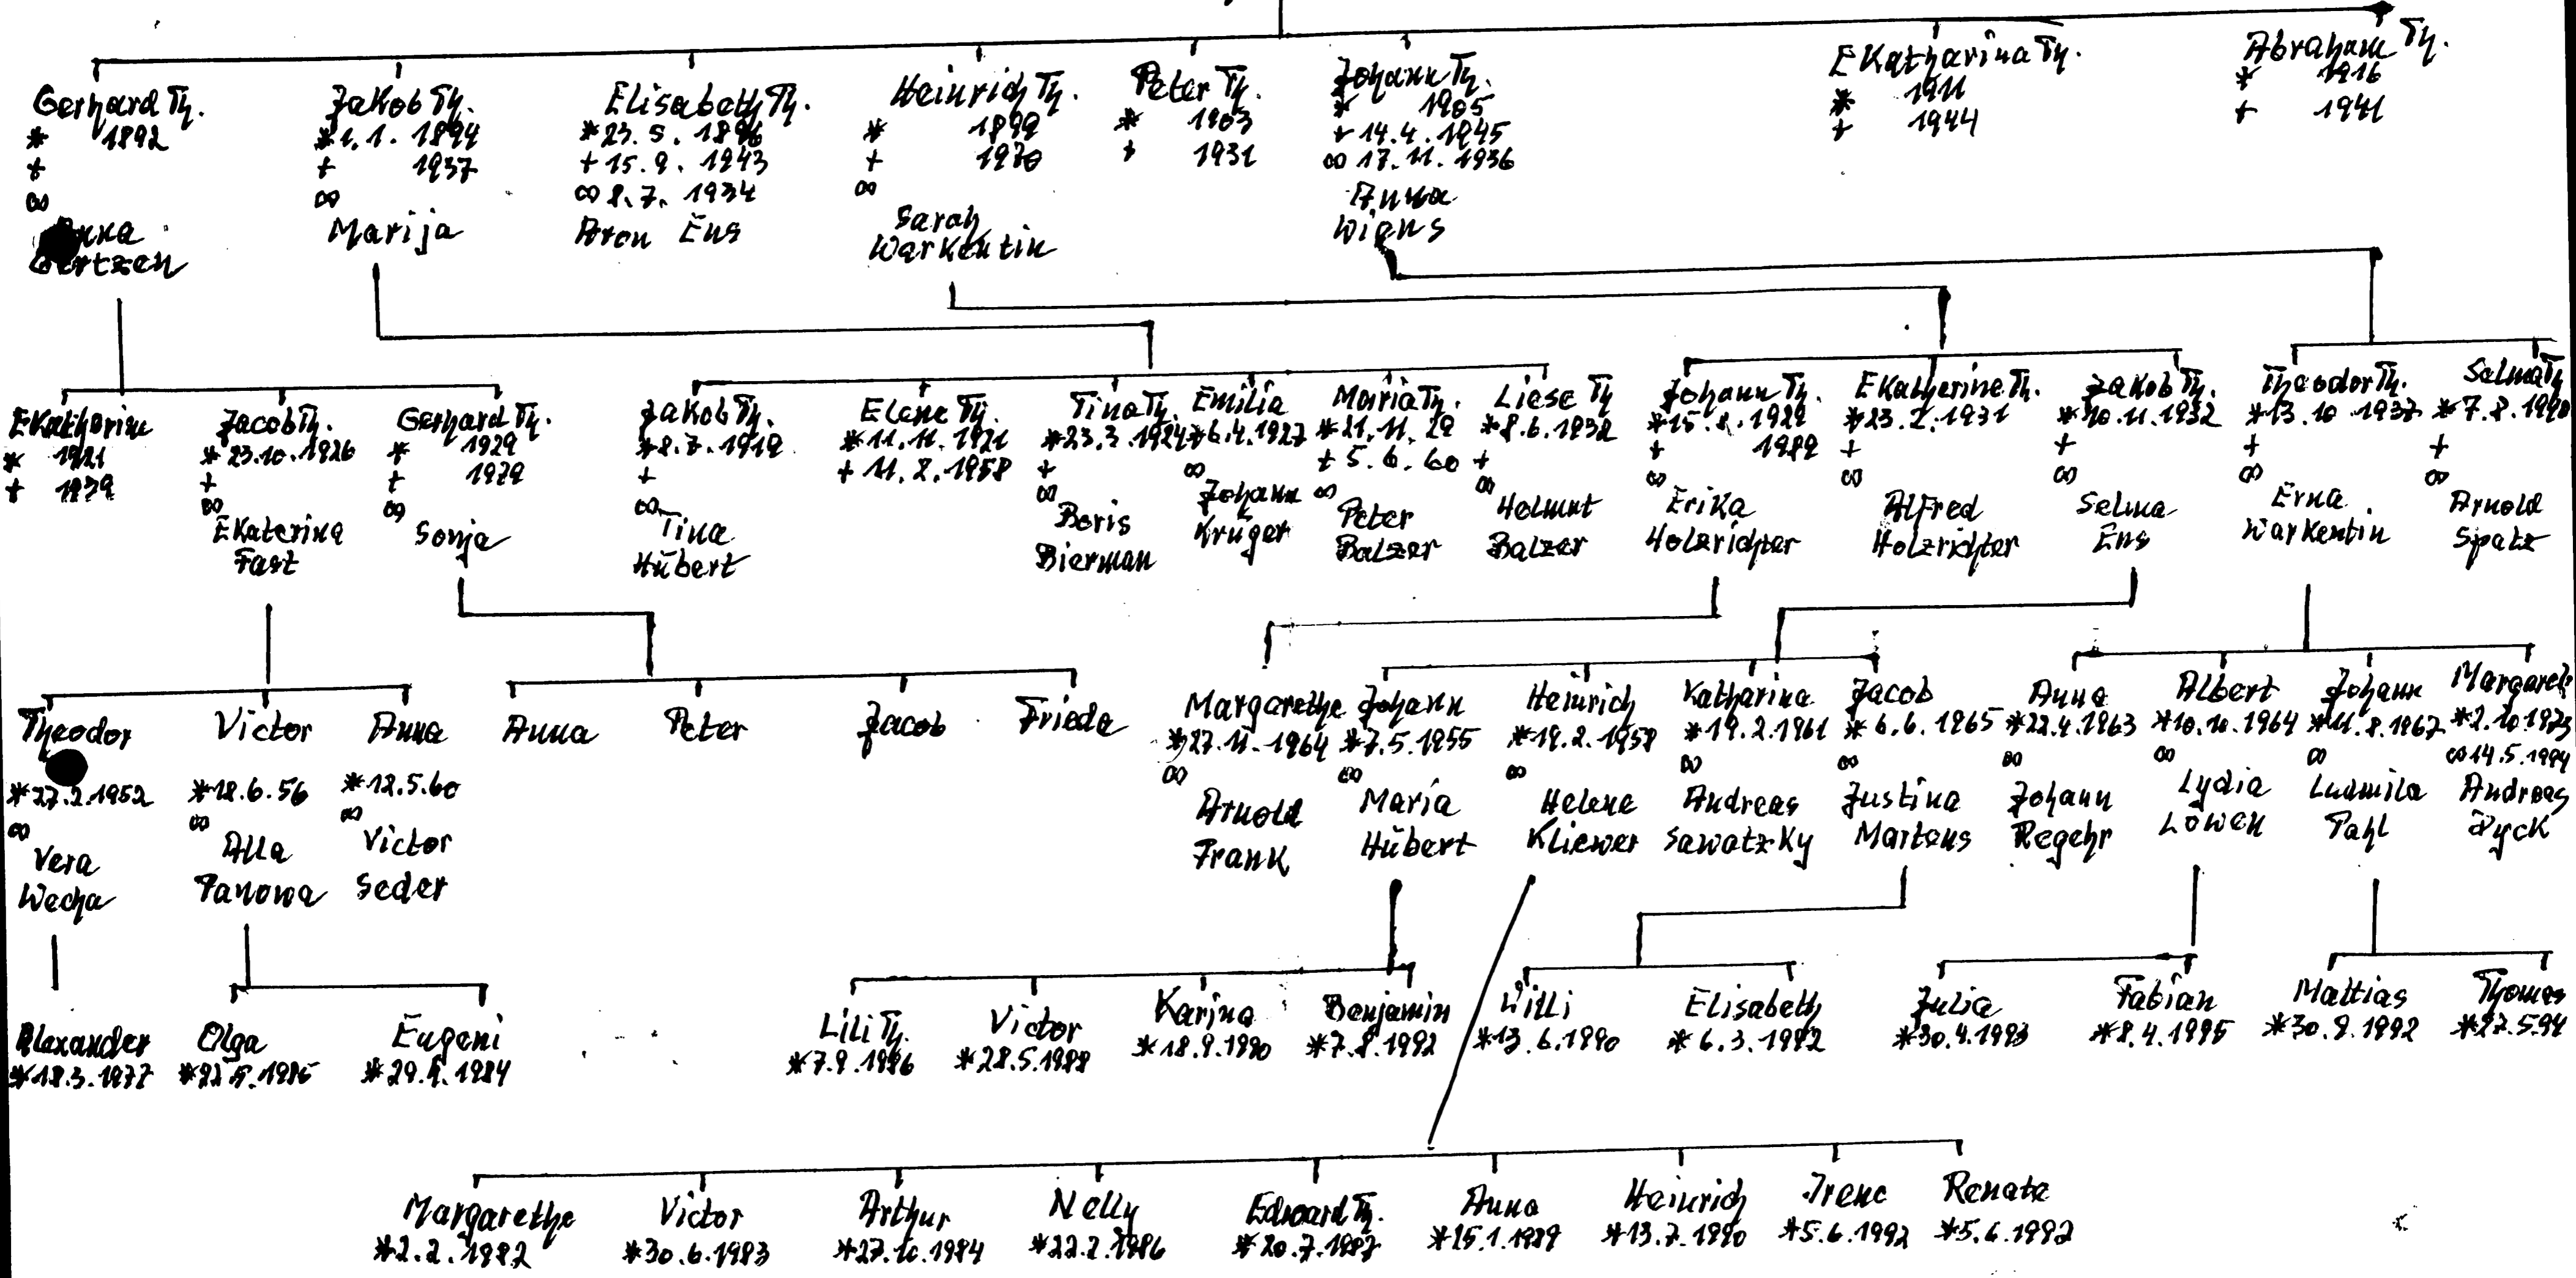 Gerhard Th.
* 1892
+
∞
Anna
Gortzen
Jakob Th.
* 1.1.1894
+ 1937
∞
Marija
Elisabeth Th.
* 23.5.1896
+ 15.9.1943
∞ 8.7.1934
Aron Ens
Heinrich Th.
* 1899
+ 1970
∞
Sarah
Warkentin
Peter Th.
* 1903
+ 1931
Johann Th.
* 1905
+ 14.4.1945
∞ 17.11.1936
Anna
Wiens
EKatharina Th.
* 1911
+ 1944
Abraham Th.
* 1916
+ 1941
EKatharina
* 1921
+ 1979
Jacob Th.
* 23.10.1926
+
∞
EKaterina
Fast
Gerhard Th.
* 1929
+ 1979
∞
Sonja
Jakob Th.
* 8.7.1919
+
∞ Tina
Hübert
Elene Th.
* 11.11.1921
+ 11.2.1958
Tina Th.
* 23.3.1924
+
∞
Boris
Bierman
Emilia
* 6.4.1927
∞
Johann
Krüger
Maria Th.
* 21.11.29
+ 5.6.60
∞
Peter
Balzer
Liese Th
* 8.6.1932
+
∞
Helmut
Balzer
Johann Th.
* 15.8.1929
+ 1989
∞
Erika
Holzrichter
EKatherine Th.
* 23.2.1931
+
∞
Alfred
Holzrichter
Jakob Th.
* 10.11.1932
+
∞
Selma
Ens
Theodor Th.
* 13.10.1937
+
∞
Erna
Warkentin
Selma Th
* 7.8.1940
+
∞
Arnold
Spatz
Theodor
* 27.2.1952
∞
Vera
Wecha
Victor
* 18.6.56
∞
Alla
Panowa
Anna
* 12.5.60
∞
Victor
Seder
Anna
Peter
Jacob
Frieda
Margarethe
* 27.11.1964
∞
Arnold
Frank
Johann
* 7.5.1955
∞
Maria
Hübert
Heinrich
* 19.2.1958
∞
Helene
Kliewer
Katharina
* 19.2.1961
∞
Andreas
Sawatzky
Jacob
* 6.6.1965
∞
Justina
Martens
Anna
* 22.4.1963
∞
Johann
Regehr
Albert
* 10.10.1964
∞
Lydia
Löwen
Johann
* 11.8.1967
∞
Ludmila
Pahl
Margaret
* 2.10.1973
∞ 14.5.1994
Andreas
Dyck
Alexander
* 18.3.1977
Olga
Eugeni
* 29.4.1984
Lili Th.
* 7.9.1986
Victor
* 28.5.1988
Karina
* 18.9.1990
Benjamin
* 7.8.1992
Willi
* 13.6.1990
Elisabeth
* 6.3.1992
Julia
* 30.4.1993
Fabian
* 8.4.1995
Mattias
* 30.9.1992
Thomas
* 27.5.94
Margarethe
* 2.2.1982
Victor
* 30.6.1983
Arthur
* 27.10.1984
Nelly
* 22.2.1986
Edward Th.
* 20.7.1987
Anna
* 15.1.1989
Heinrich
* 13.7.1990
Irene
* 5.6.1992
Renate
* 5.6.1992